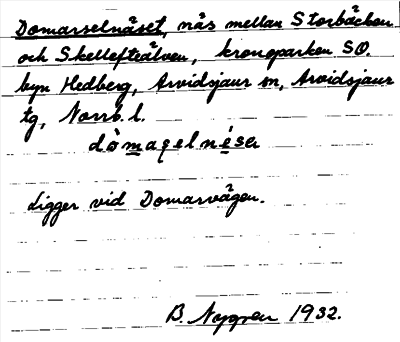 Domarselnäset, näs mellan Storbäcken
och Skellefteälven, kronoparken SO.
byn Hedberg, Arvidsjaur sn, Arvidsjaur
tg, Norrb. l.
dòmaselnéset
Ligger vid Domarvägen.
B. Nygren 1932.